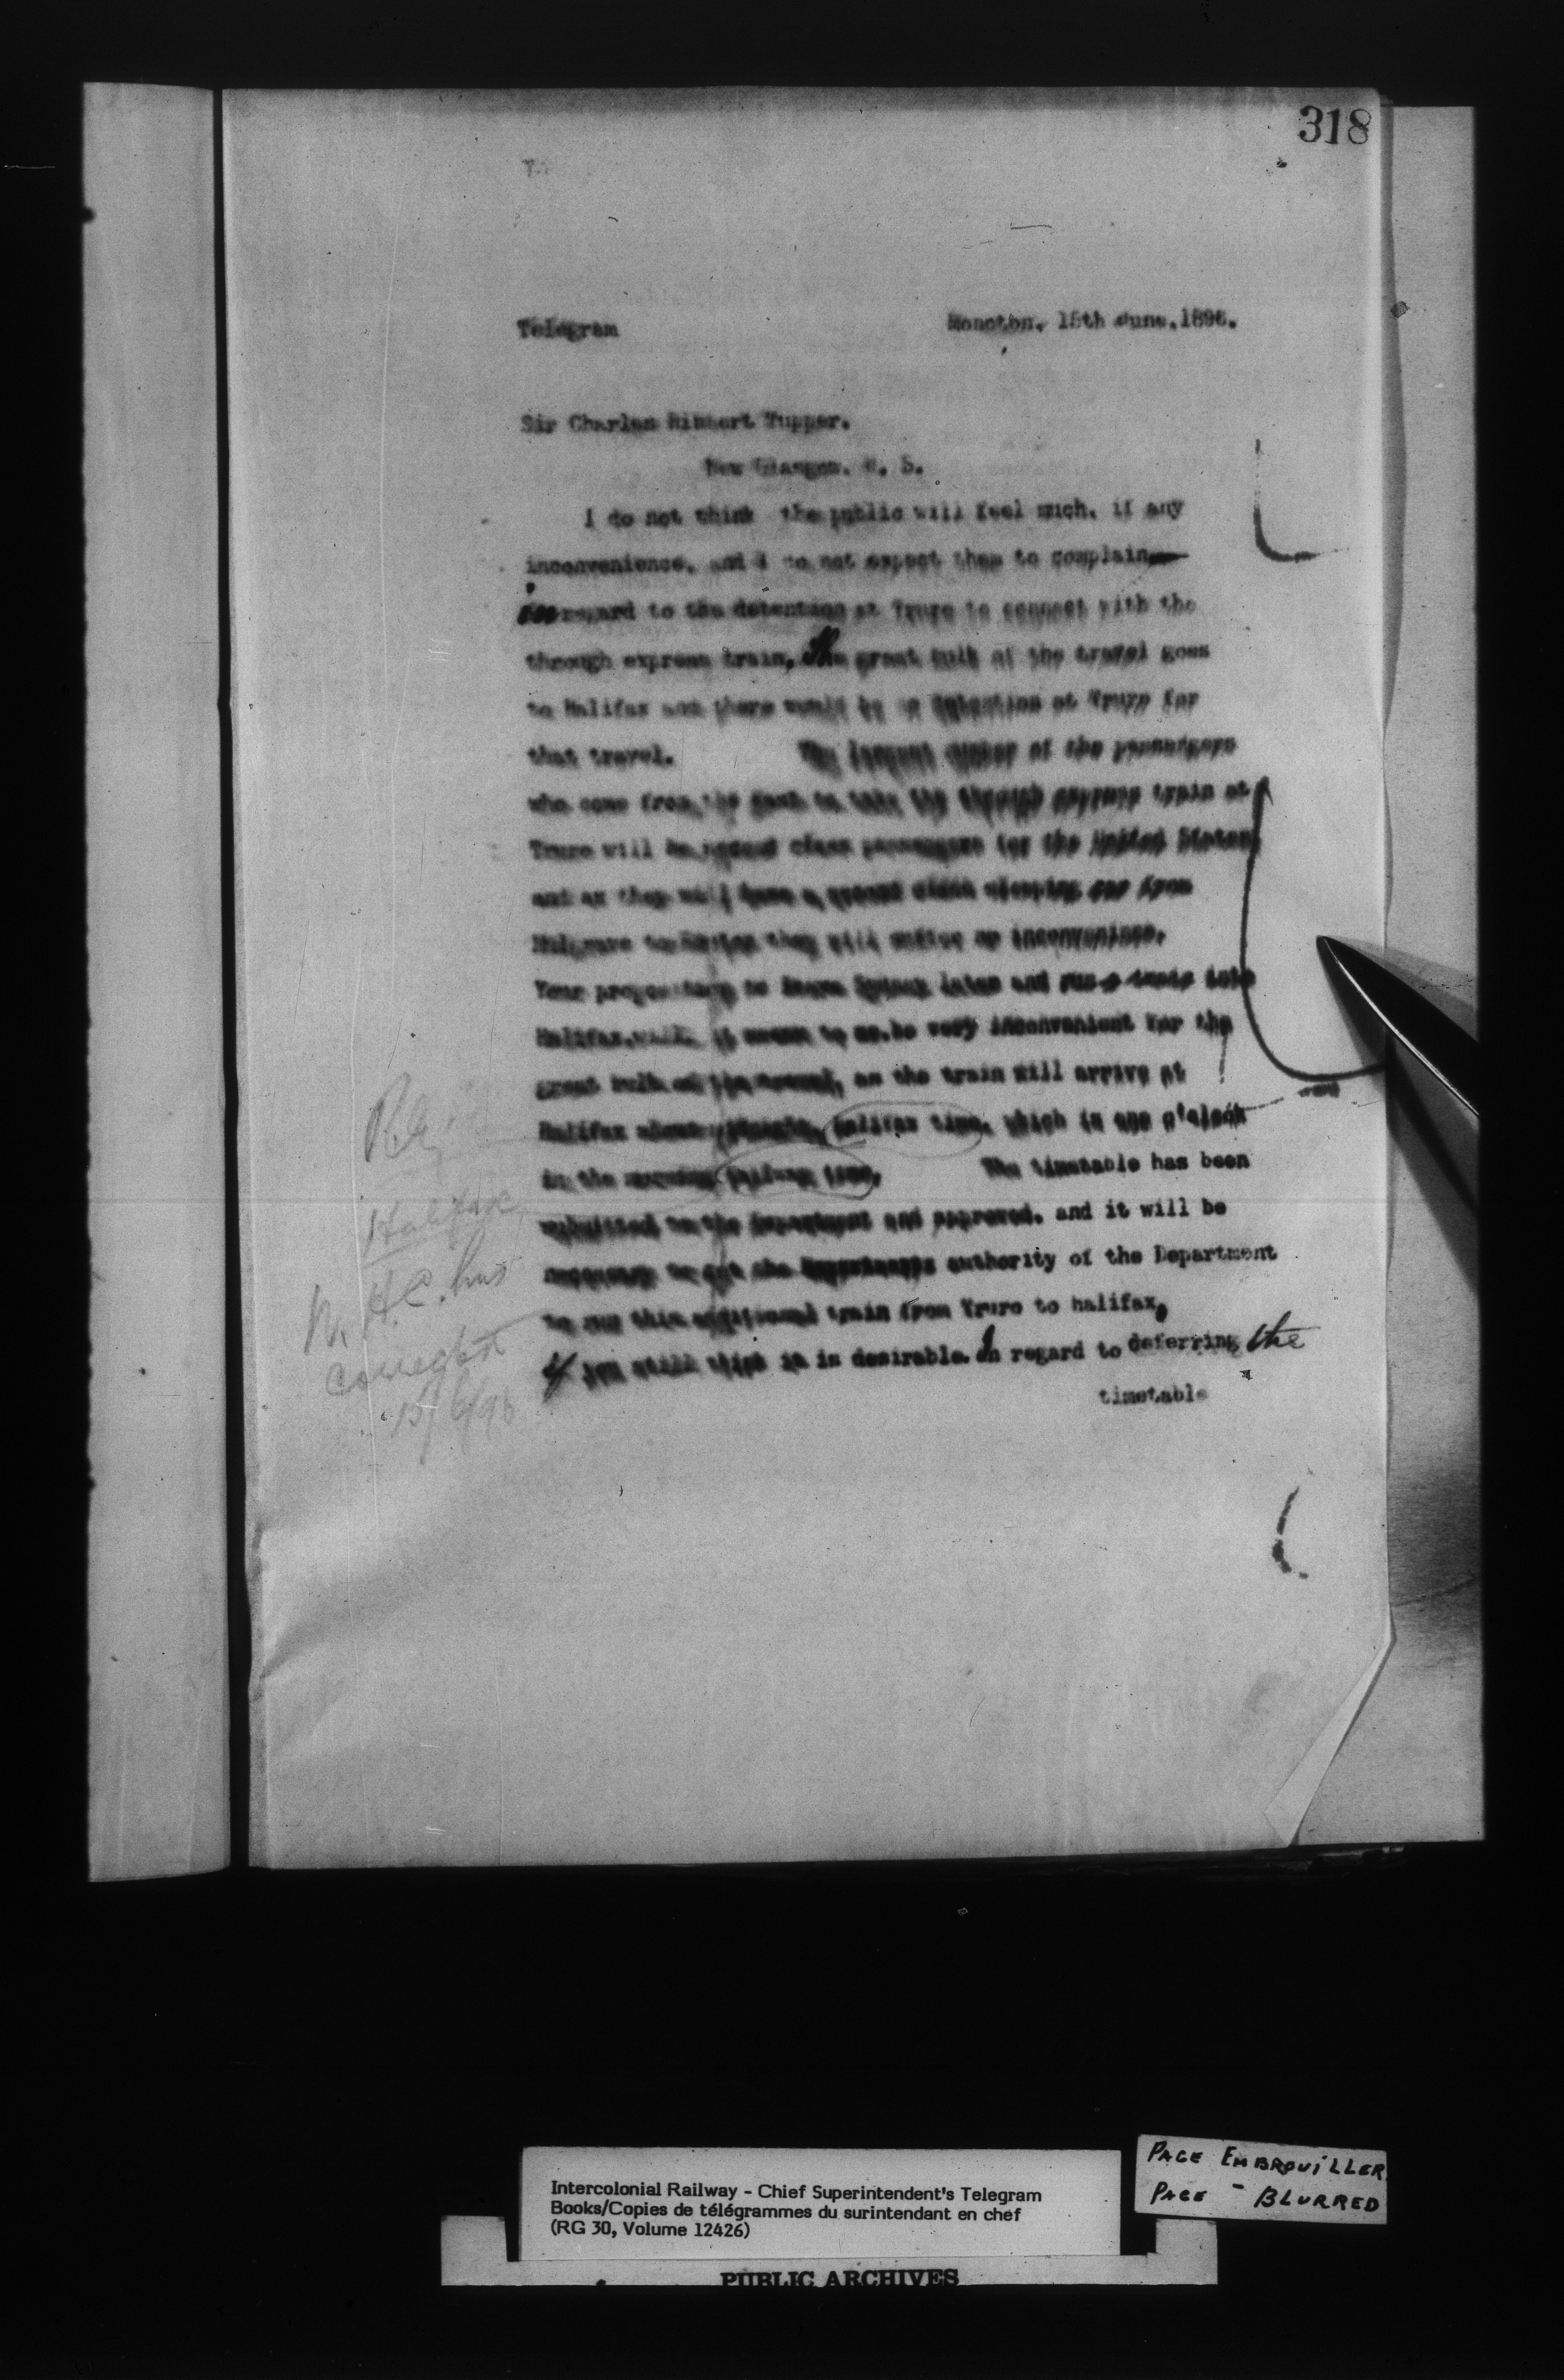 318
Telegram
Moncton. 15th June. 1896.
Sir Charles Hibbert Tupper.
New Glasgow. N. S.
I do not think the public will feel much, if any
inconvenience, and I do not expect them to complain
regard to the detention at Truro to connect with the
through express train, The great bulk of the travel goes
to Halifax and there would be no detention at Truro for
that travel. The largest number of the passengers
who come from the East to take the through express train at
Truro will be second class passengers for the United States
and as they will have a second class sleeping car from
they will suffer no inconvenience.
Your proposition to leave Sydney later and run a train into
Halifax, will, it seems to me, be very inconvenient for the
great bulk of the travel, as the train will arrive at
Halifax about midnight, Halifax time, which is one o'clock
in the morning railway time. The timetable has been
submitted to the Department and approved, and it will be
necessary to get the authority of the Department
to run this additional train from Truro to Halifax,
if you still think it is desirable. In regard to deferring the
timetable
Halifax
15/6/96
Intercolonial Railway - Chief Superintendent's Telegram
Books/Copies de télégrammes du surintendant en chef
(RG 30, Volume 12426)
PAGE EMBROUILLER
PAGE - BLURRED
PUBLIC ARCHIVES